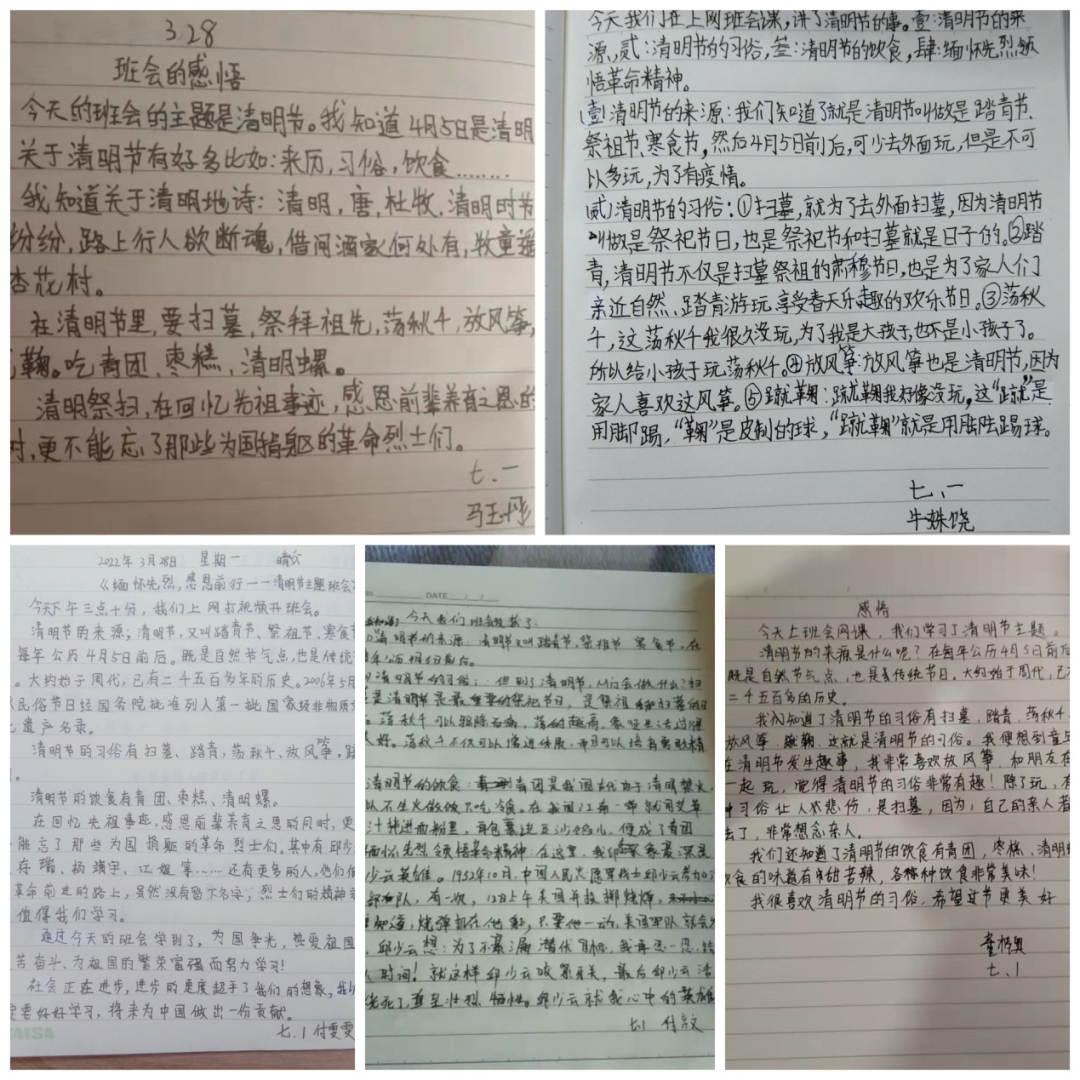 3.28
班会的感悟
今天的班会的主题是清明节。我知道4月5日是清明
关于清明节有好多比如:来历,习俗,饮食………
我知道关于清明地诗:清明,唐,杜牧,清明时节
纷纷,路上行人欲断魂,借问酒家何处有,牧童遥
杏花村。
在清明节里,要扫墓,祭拜祖先,荡秋千,放风筝,
鞠。吃青团、枣糕、清明螺。
清明祭扫,在回忆先祖事迹,感恩前辈养育之恩的
时,更不能忘了那些为国捐躯的革命烈士们。
七.一
马玉彤
今天我们在上网班会课,讲了清明节的事。壹:清明节的来
源,贰:清明节的习俗,叁:清明节的饮食,肆:缅怀先烈领
悟革命精神。
(壹)清明节的来源:我们知道了就是清明叫做是踏青节、
祭祖节、寒食节,然后4月5日前后,可少去外面玩,但是不可
以多玩,为了有疫情。
(贰)清明节的习俗:①扫墓,就为了去外面扫墓,因为清明节
叫做是祭祀节日,也是祭祀节和扫墓就是日子的。②踏
青,清明节不仅是扫墓祭祖的肃穆节日,也是为了家人们
亲近自然、踏青游玩、享受春天乐趣的欢乐节日。③荡秋
千,这荡秋千我很久没玩,为了我是大孩子,也不是小孩子了。
所以给小孩子玩荡秋千。④放风筝:放风筝也是清明节,因为
家人喜欢这风筝。⑤蹴鞠:蹴鞠我好像没玩,这“蹴”是
用脚踢,“鞠”是皮制的球,“蹴鞠”就是用脚去踢球。
七、一
牛姝饶
2022年3月28日 星期一 晴
《缅怀先烈,感恩前行——清明节主题班会
今天下午三点十分,我们上网打视频开班会。
清明节的来源;清明节,又叫踏青节、祭祖节、寒食节
每年公历4月5日前后。既是自然节气点,也是传统
。大约始于周代,已有二千五百多年的历史。2006年5月
民俗节日经国务院批准列入第一批国家级非物质文
遗产名录。
清明节的习俗有扫墓、踏青,荡秋千、放风筝,蹴
。
清明节的饮食有青团、枣糕、清明螺。
在回忆先祖事迹,感恩前辈养育之恩的同时,更
能忘了那些为国捐躯的革命烈士们。其中有邱少
存瑞、杨靖宇、江姐等……还有更多的人,他们倒
革命前进的路上,虽然没有留下名字,烈士们的精神
值得我们学习。
通过今天的班会学到了,为国争光,热爱祖国
苦奋斗、为祖国的繁荣富强而努力学习!
社会正在进步,进步的速度超乎了我们的想象,我
要好好学习,将来为中国做出一份贡献。
七.1 付雯雯
DATE / /
今天我们班会
清明节的来源:清明节又叫踏青节,祭祖节 寒食节,在
清明节的习俗:但到了清明节,人们会做什么?扫
是清明节是最重要的祭祀节日,是祭祖和扫墓的日
荡秋千可以祛除百病,荡的越高,象征生活过得
美好。荡秋千不仅可以增进健康,而且可以培养勇敢精
清明节的饮食:青团是我国古代为了清明禁火
以不生火做饭只吃冷食。在我国江南一带就用艾草
汁揉进面粉里,再包裹进豆沙馅儿,便成了青团
缅怀先烈领悟革命精神:在这里,我印象最深是
少云英雄。1952年10月,中国人民志愿军战士邱少云参加了
部队,有一次,12日上午美国兵投掷烧弹,
知道,烧弹扔在他身,只要他一动,美国军队就会发
邱少云想:为了不暴漏潜伏目标,我再忍一忍,
时间!就这样邱少云咬紧牙关,最后邱少云活
烧死了,直至壮烈牺牲。邱少云就我心中的英雄
七.1 付
感悟
今天上班会网课,我们学习了清明节主题。
清明节的来源是什么呢?在每年公历4月5日前后
既是自然节气点,也是传统节日,大约始于周代,已
二千五百多的历史。
我们知道了清明节的习俗有扫墓,踏青,荡秋千、
放风筝、蹴鞠、这就是清明节的习俗。我便想到童年
在清明节发生趣事,我非常喜欢放风筝,和朋友在
一起玩,觉得清明节的习俗非常有趣!除了玩,有
种习俗让人心悲伤,是扫墓,因为,自己的亲人若
去了,非常想念亲人。
我们还知道了清明节的饮食有青团,枣糕、清明螺
饮食的味道有甜苦辣,各种种饮食非常美味!
我很喜欢清明节的习俗,希望过节更美好
七.1